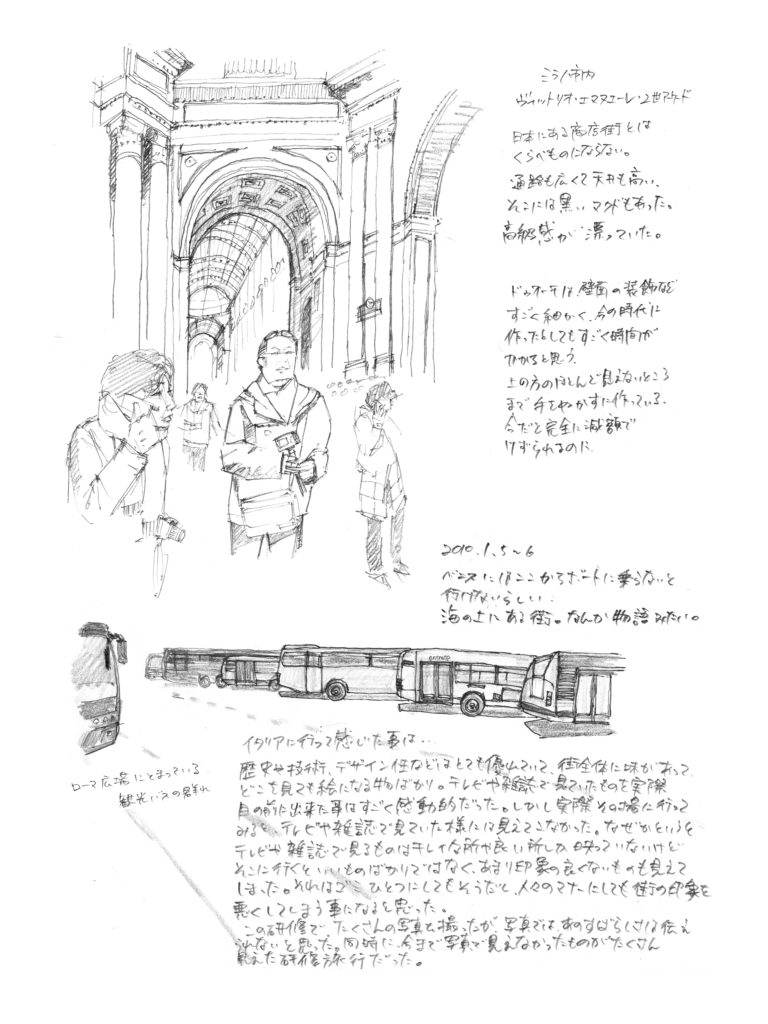 ミラノ市内
ヴィットリオ・エマヌエーレ・2世アーケード
日本にある商店街とは
くらべものにならない。
通路も広くて天井も高い、
そこには黒いマクドもあった。
高級感が漂っていた。
ドゥオーモは、壁面の装飾など
すごく細かく、今の時代に
作ったとしてもすごく時間が
かかると思う。
上の方のほとんど見えないところ
まで手をぬかずに作っている、
今だと完全に減額で
けずられるのに
2010.1.5~6
ベニスにはここからボートに乗らないと
行けないらしい..
海の上にある街。なんか物語みたい。
イタリアに行って感じた事は...
歴史や技術、デザイン性などはとても優れていて、街全体に味があって、
どこを見ても絵になる物ばかり。テレビや雑誌で見ていたものを実際
目の前に出来た事はすごく感動的だった。しかし実際その場に行って
みると、テレビや雑誌で見ていた様には見えてこなかった。なぜかというと
テレビや雑誌で見るものはキレイな所や良い所しか映っていないけど
そこに行くといいものばかりではなく、あまり印象の良くないものも見えて
しまった。それはゴミひとつにしてもそうだし、人々のマナーにしても街の印象を
悪くしてしまう事になると思った。
この研修で、たくさんの写真を撮ったが、写真では、あのすばらしさは伝え
られないと思った。同時に、今まで写真で見えなかったものがたくさん
見えた研修旅行だった。
ローマ広場にとまっている
観光バスの群れ